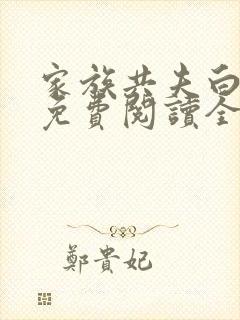 家族共夫白
免費閱讀全
鄭貴妃